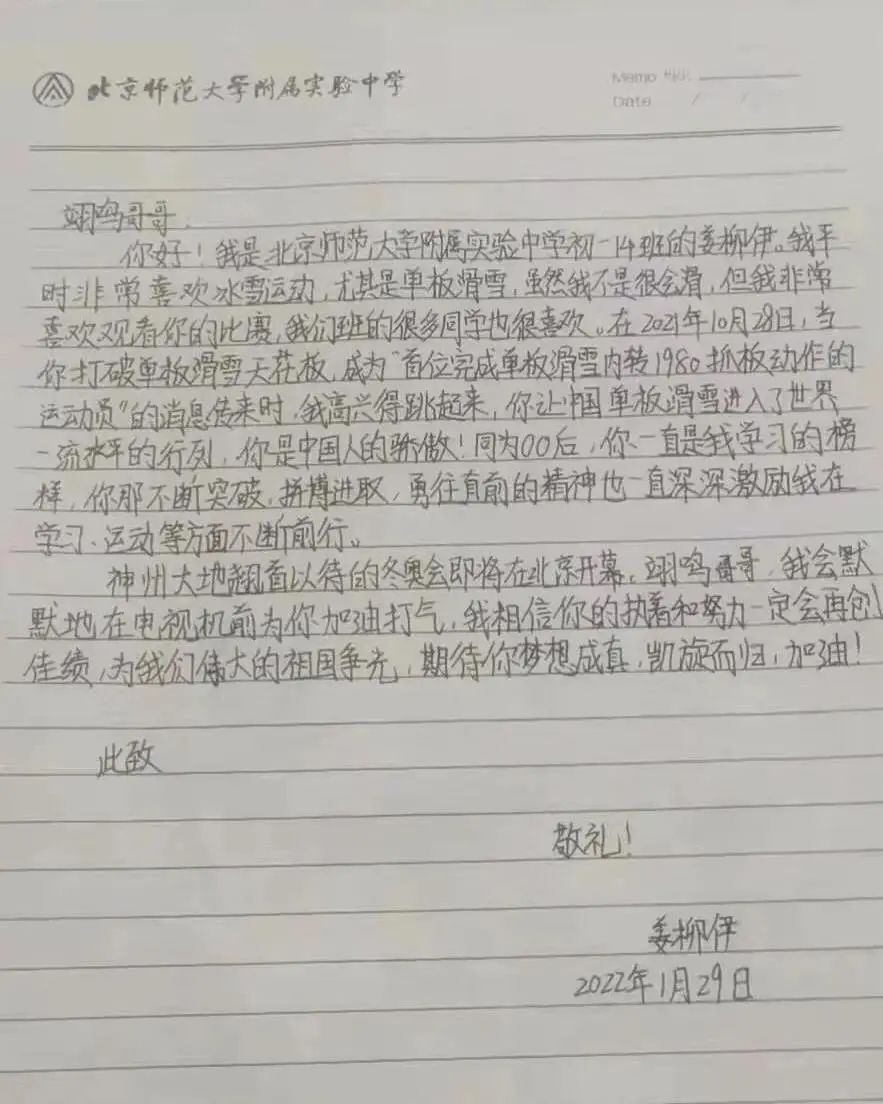 北京师范大学附属实验中学
Memo No.
Date / /
翊鸣哥哥.
你好！我是北京师范大学附属实验中学初一14班的姜柳伊。我平
时非常喜欢冰雪运动，尤其是单板滑雪，虽然我不是很会滑，但我非常
喜欢观看你的比赛，我们班的很多同学也很喜欢。在2021年10月28日，当
你打破单板滑雪天花板，成为“首位完成单板滑雪内转1980抓板动作的
运动员”的消息传来时，我高兴得跳起来，你让中国单板滑雪进入了世界
一流水平的行列，你是中国人的骄傲！同为00后，你一直是我学习的榜
样，你那不断突破，拼搏进取，勇往直前的精神也一直深深激励我在
学习、运动等方面不断前行。
神州大地翘首以待的冬奥会即将在北京开幕。翊鸣哥哥，我会默
默地在电视机前为你加油打气，我相信你的执着和努力一定会再创
佳绩，为我们伟大的祖国争光，期待你梦想成真，凯旋而归，加油！
此致
敬礼！
姜柳伊
2022年1月29日